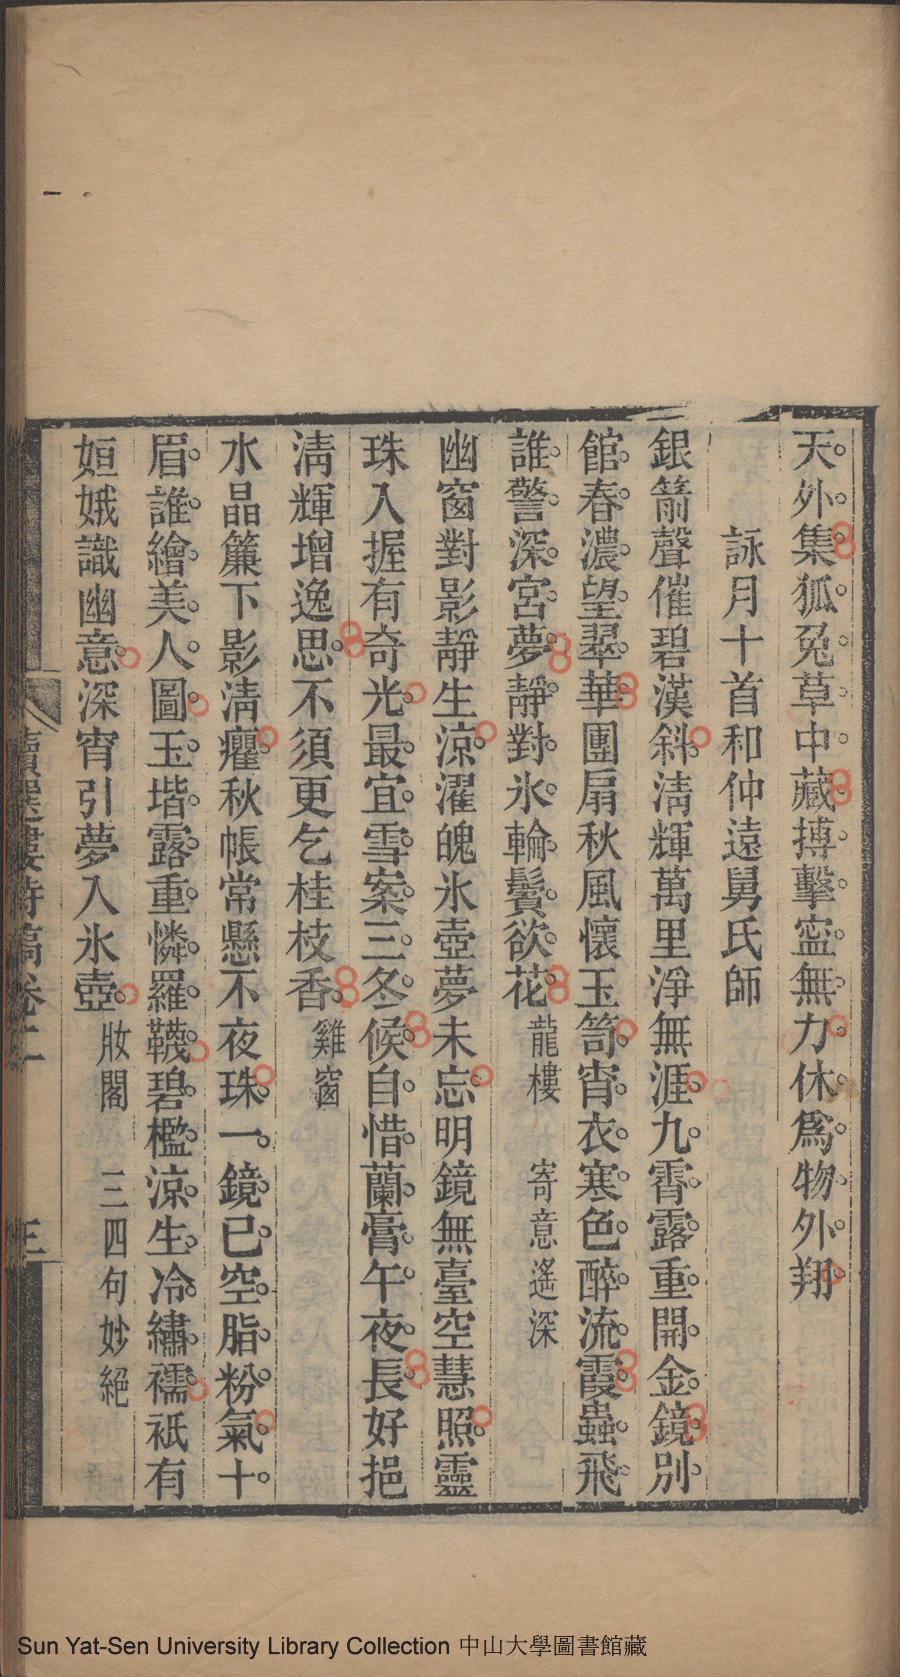 天外集狐兔草中藏搏擊寍無力休爲物外翔
詠月十首和仲遠舅氏師
銀箭聲催碧漢斜清輝萬里淨無涯九霄露重開金鏡別
館春濃望翠華團扇秋風懷玉笥宵衣寒色醉流霞蟲飛
誰警深宮夢靜對氷輪鬢欲花龍樓 寄意遙深
幽窗對影靜生涼濯魄氷壺夢未忘明鏡無臺空慧照靈
珠入握有奇光最宜雪案三冬候自惜蘭膏午夜長好挹
淸輝增逸思不須更乞桂枝香雞窗
水晶簾下影淸癯秋帳常懸不夜珠一鏡已空脂粉氣十
眉誰繪美人圖玉堦露重憐羅韈碧檻涼生冷繡襦祇有
姮娥識幽意深宵引夢入氷壺妝閣 三四句妙絕
讀選樓詩稿卷十 三
Sun Yat-Sen University Library Collection 中山大學圖書館藏